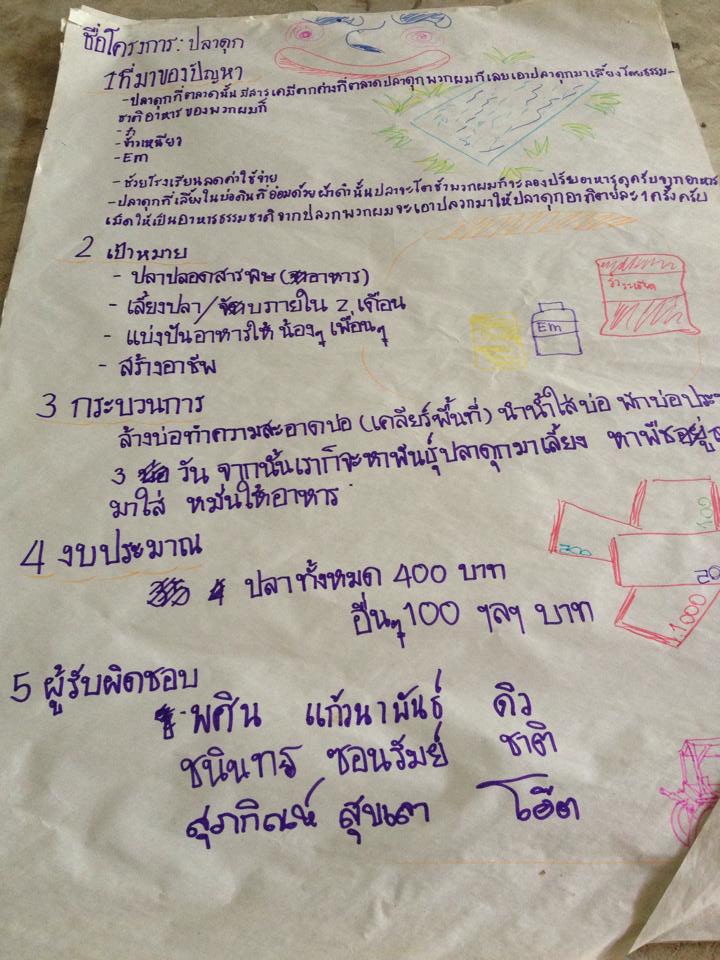 ชื่อโครงการ: ปลาดุก
1 ที่มาของปัญหา
- ปลาดุกที่ตลาดนั้นมีสารเคมีตกค้างที่ตลาดปลาดุกพวกผมก็เลยเอาปลาดุกมาเลี้ยงโดยธรรม-
ชาติอาหารของพวกผมก็
- รำ
- ข้าวเหนียว
- Em
- ช่วยโรงเรียนลดค่าใช้จ่าย
- ปลาดุกที่เลี้ยงในบ่อดินที่อ้อมด้วยผ้าดำนั้นปลาจะโตช้าพวกผมก็จะลองปรับอาหารดูครับจากอาหาร
เม็ดให้เป็นอาหารธรรมชาติจากปลวกพวกผมจะเอาปลวกมาให้ปลาดุกอาทิตย์ละ 1 ครั้งครับ
2 เป้าหมาย
- ปลาปลอดสารพิษ (อาหาร)
- เลี้ยงปลา/จับภายใน 2 เดือน
- แบ่งปันอาหารให้น้องๆ เพื่อนๆ
- สร้างอาชีพ
Em
รำ
3 กระบวนการ
ล้างบ่อทำความสะอาดบ่อ (เคลียร์พื้นที่) นำน้ำใส่บ่อ พักบ่อประ
3 วัน จากนั้นเราก็จะหาพันธุ์ปลาดุกมาเลี้ยง หาพืชอยู่
มาใส่ หมั่นให้อาหาร
4 งบประมาณ
ปลาทั้งหมด 400 บาท
อื่นๆ 100 ฯลฯ บาท
100
200
20
1000
5 ผู้รับผิดชอบ
- พศิน แก้วนาพันธ์ ดิว
ชนินทร ซอนรัมย์ ชาติ
สุภกิณห์ โอ๊ต